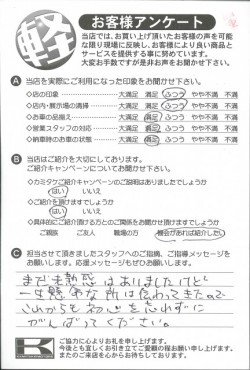 軽
お客様アンケート
当店では、お買い上げ頂いたお客様の声を可能
な限り現場に反映し、お客様により良い商品と
サービスを提供する事に努めています。
大変お手数ですが是非お声をお聞かせ下さい。
A 当店を実際にご利用になった印象をお聞かせ下さい。
◇店の印象 ◇大満足 満足 ふつう やや不満 不満
◇店内・展示場の清掃 ◇大満足 満足 ふつう やや不満 不満
◇お車の品揃え ◇大満足 満足 ふつう やや不満 不満
◇営業スタッフの対応 ◇大満足 満足 ふつう やや不満 不満
◇納車時のお車の状態 ◇大満足 満足 ふつう やや不満 不満
B 当店はご紹介を大切にしております。
ご紹介キャンペーンについてお聞かせ下さい。
◇カミタケご紹介キャンペーンのご説明はありましたでしょうか
はい いいえ
◇ご紹介を頂けますでしょうか
はい いいえ
◇具体的にご紹介頂ける方とのご関係をお聞かせ頂けますでしょうか
ご親族 ご友人 職場の方 機会があれば紹介したい
C 担当させて頂きましたスタッフへのご指摘、ご指導メッセージを
お願いします。応援メッセージもぜひお願いします。
まだ未熟感はありましたけど
一生懸命な所は伝わってきたので
これからも初心を忘れずに
がんばってください。
K
ご協力に心よりお礼を申し上げます。
今後とも宜しくお引き立てご愛顧の程お願い申し上げます。
またのご来店を心からお待ちしております。